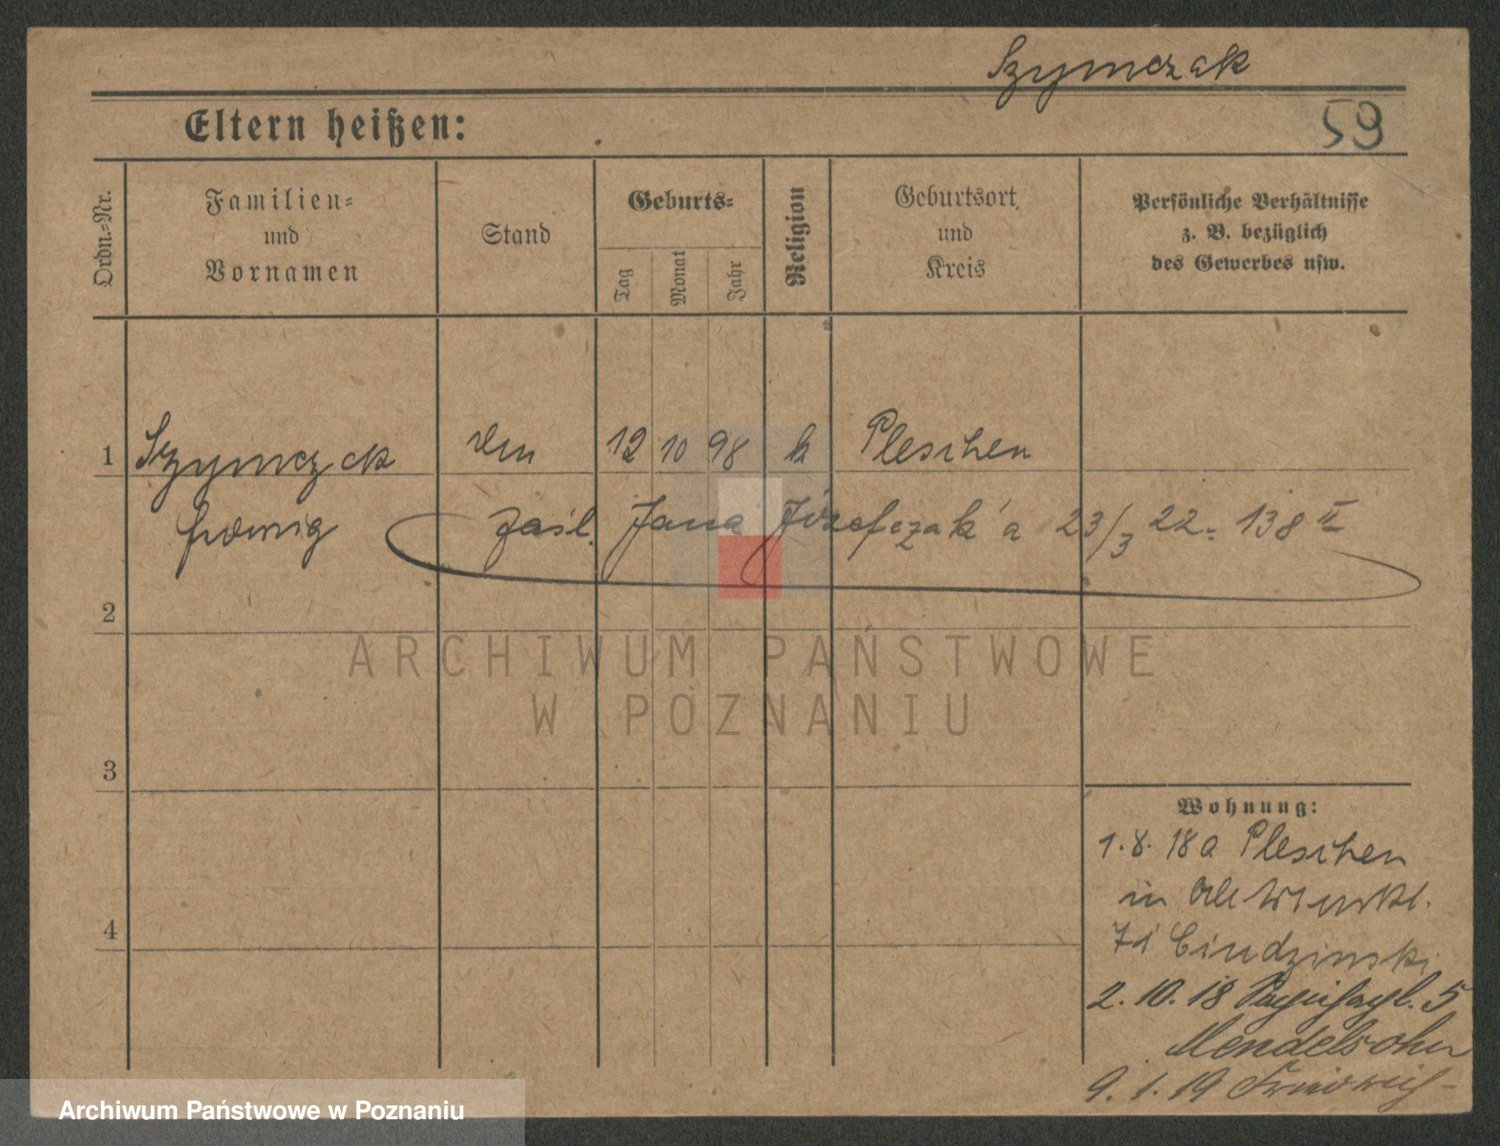 Szymczak
59
Eltern heißen:
Ordn.-Nr.
Familien-
und
Vornamen
Stand
Geburts-
Tag
Monat
Jahr
Religion
Geburtsort
und
Kreis
Persönliche Verhältnisse
z. B. bezüglich
des Gewerbes usw.
1 Szymczak 12 10 98 k Pleschen
zaśl. Jana Józefczak'a 23/3 22. 138 II
2
ARCHIWUM PAŃSTWOWE
W POZNANIU
3
Wohnung:
1.8.18 a Pleschen
in
71
4
2.10.18 5
Mendelsohn
9.1.19
Archiwum Państwowe w Poznaniu